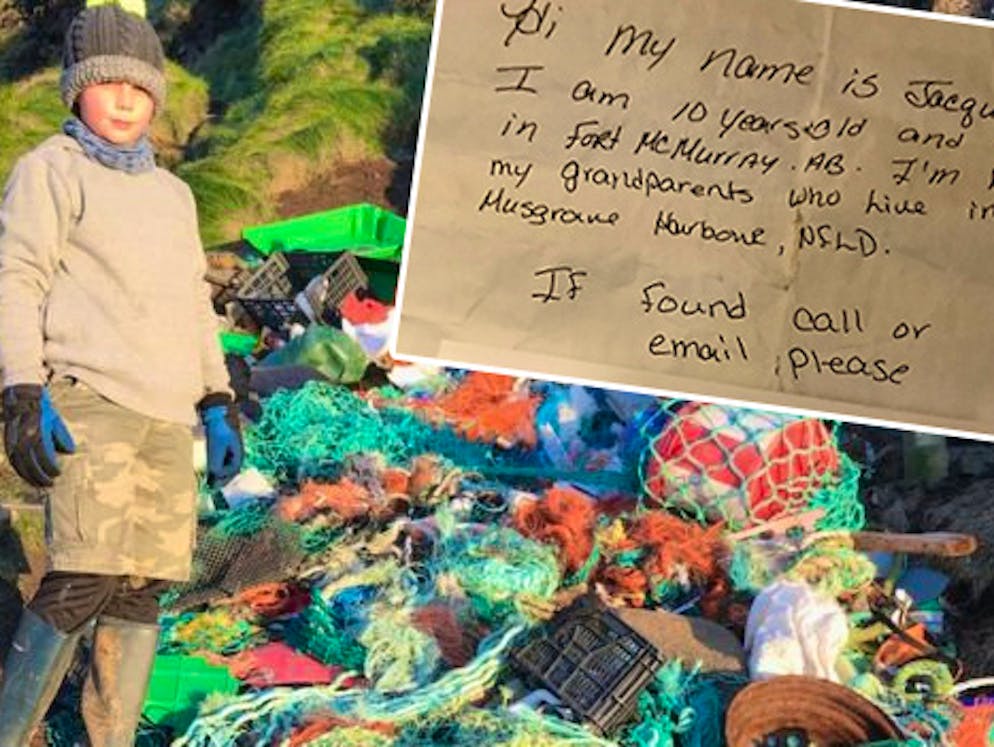 Hi my name is
I am 10 years old and
in Fort McMurray. AB. I'm
my grandparents who live in
Musgrave Harbour, NFLD.
If found call or
email please